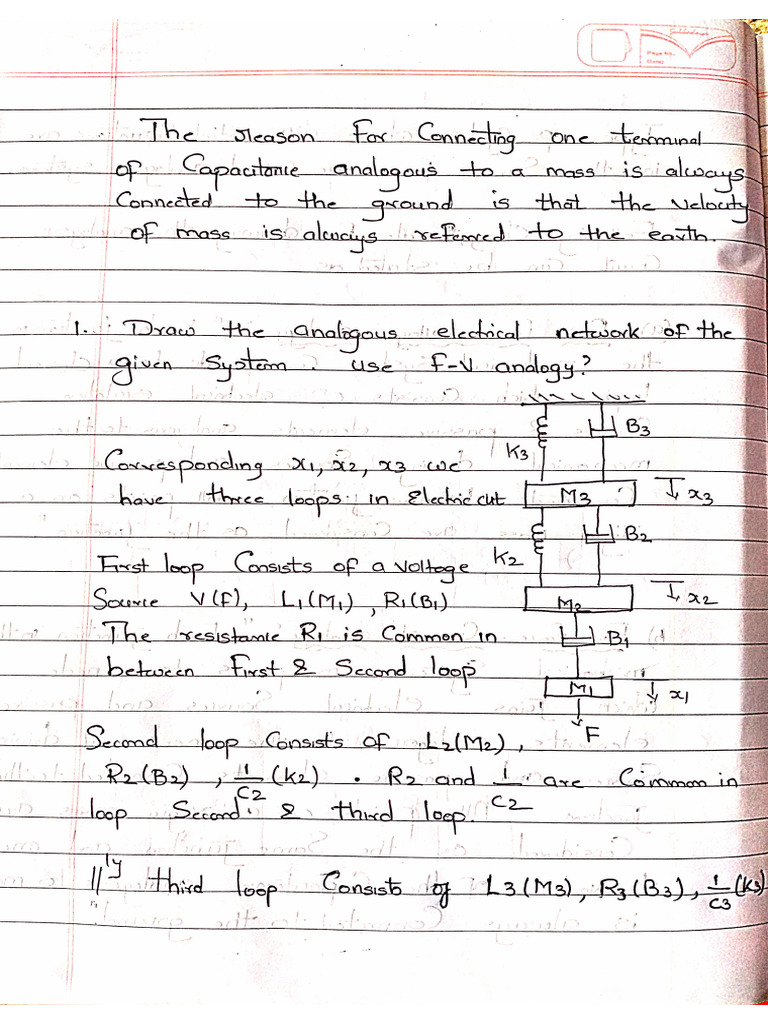 Page No.
Date:
The reason For Connecting one terminal
of Capacitance analogous to a mass is always
Connected to the ground is that the velocity
of mass is always referred to the earth.
1. Draw the analogous electrical network of the
given System. use F-V analogy?
B3
K3
Corresponding x1, x2, x3 we
have three loops in Electric cut
M3
x3
B2
K2
First loop Consists of a voltage
Source V(F), L1(M1), R1(B1)
M2
x2
The resistance R1 is Common in
B1
between First & Second loop
M1
x1
F
Second loop Consists of L2(M2),
R2(B2), 1/C2 (K2). R2 and 1/C2 are Common in
loop Second & third loop.
||ly third loop Consists of L3(M3), R3(B3), 1/C3 (K3)